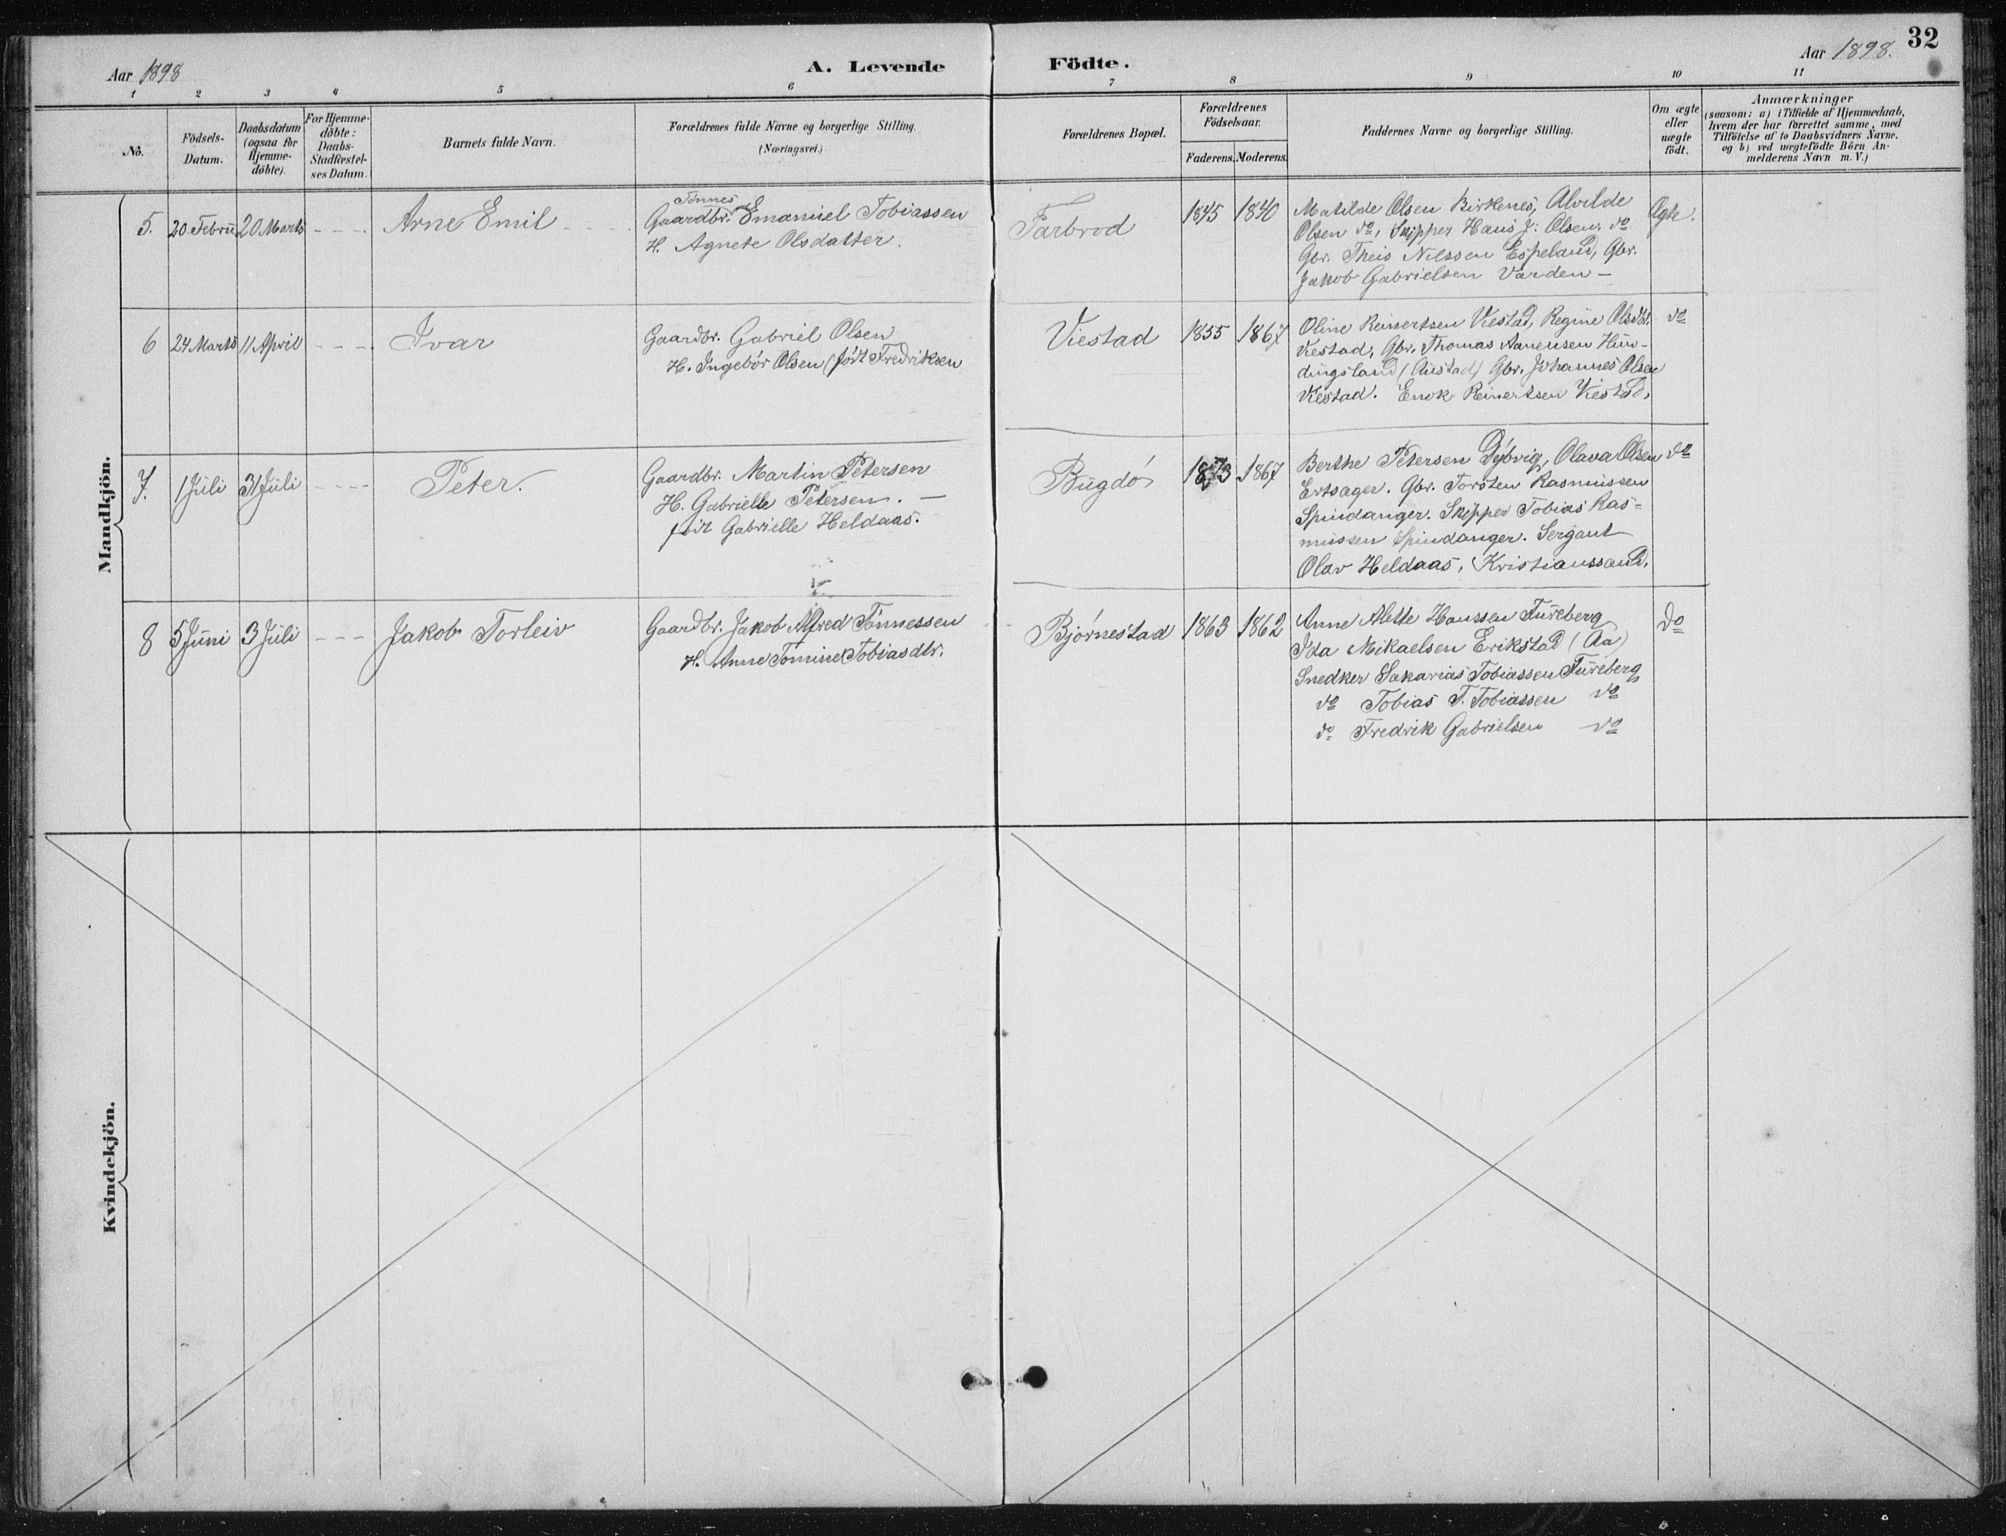 32
Aar 1898
A. Levende
Födte.
Aar 1898.
1 2 3 4 5 6 7 8 9 10 11
No.
Födsels-
Datum.
Daabsdatum
(ogsaa for
Hjemme-
döbte).
For Hjemme-
döbte:
Daabs-
Stadfæstel-
ses Datum.
Barnets fulde Navn.
Forældrenes fulde Navne og borgerlige Stilling.
(Næringsvei.)
Forældrenes Bopæl.
Forældrenes
Födselsaar.
Faderens. Moderens.
Faddernes Navne og borgerlige Stilling.
Om ægte
eller
uægte
födt.
Anmærkninger
(saasom: a) i Tilfælde af Hjemmedaab,
hvem der har forrettet samme, med
Tilföielse af to Daabsvidners Navne.
og b) ved uægtefödte Börn An-
melderens Navn m. V.)
Mandkjön.
5. 20 Febru 20 Marts - - - Arne Emil - - -
Tönnes
Gaardbr. Emanuel Tobiassen
H. Agnete Olsdatter.
Farbrod 1845 1840
Matilde Olsen Birkenes, Alvilde
Olsen do, Skipper Hans J. Olsen. do
Gbr. Theis Nilssen Espeland, Gbr.
Jakob Gabrielsen Varden —
Ægte.
6 24 Marts 11 April - - - Ivar
Gaardbr. Gabriel Olsen
H. Ingebör Olsen (födt Fredriksen
Viestad 1855 1867
Oline Reinertsen Viestad, Regine Olsdtr.
Viestad, Gbr. Thomas Aanensen Hun-
dingsland (Austad) Gbr. Johannes Olsen
Viestad. Enok Reinertsen Viestad,
do
7. 1 Juli 31 Juli - - - - Peter.
Gaardbr. Martin Petersen
H. Gabrielle Petersen. —
födt Gabrielle Heldaas.
Bugdö 1873 1867
Berthe Petersen Dybvig, Olava Olsen
Ertsager. Gbr. Torsten Rasmussen
Spindanger. Skipper Tobias Ras-
mussen Spindanger. Sergant
Olav Heldaas, Kristianssand.
do
8 5 Juni 3 Juli - - - Jakob Torleiv
Gaardbr. Jakob Alfred Tönnessen
H. Anne Tomine Tobiasdtr.
Bjørnestad 1863 1862
Anne Alette Hanssen Fureberg
Ida Mikaelsen Erikstad (Aa)
Snedker Sakarias Tobiassen Fureberg
do Tobias T. Tobiassen do
do Fredrik Gabrielsen do
Do
Kvindekjön.